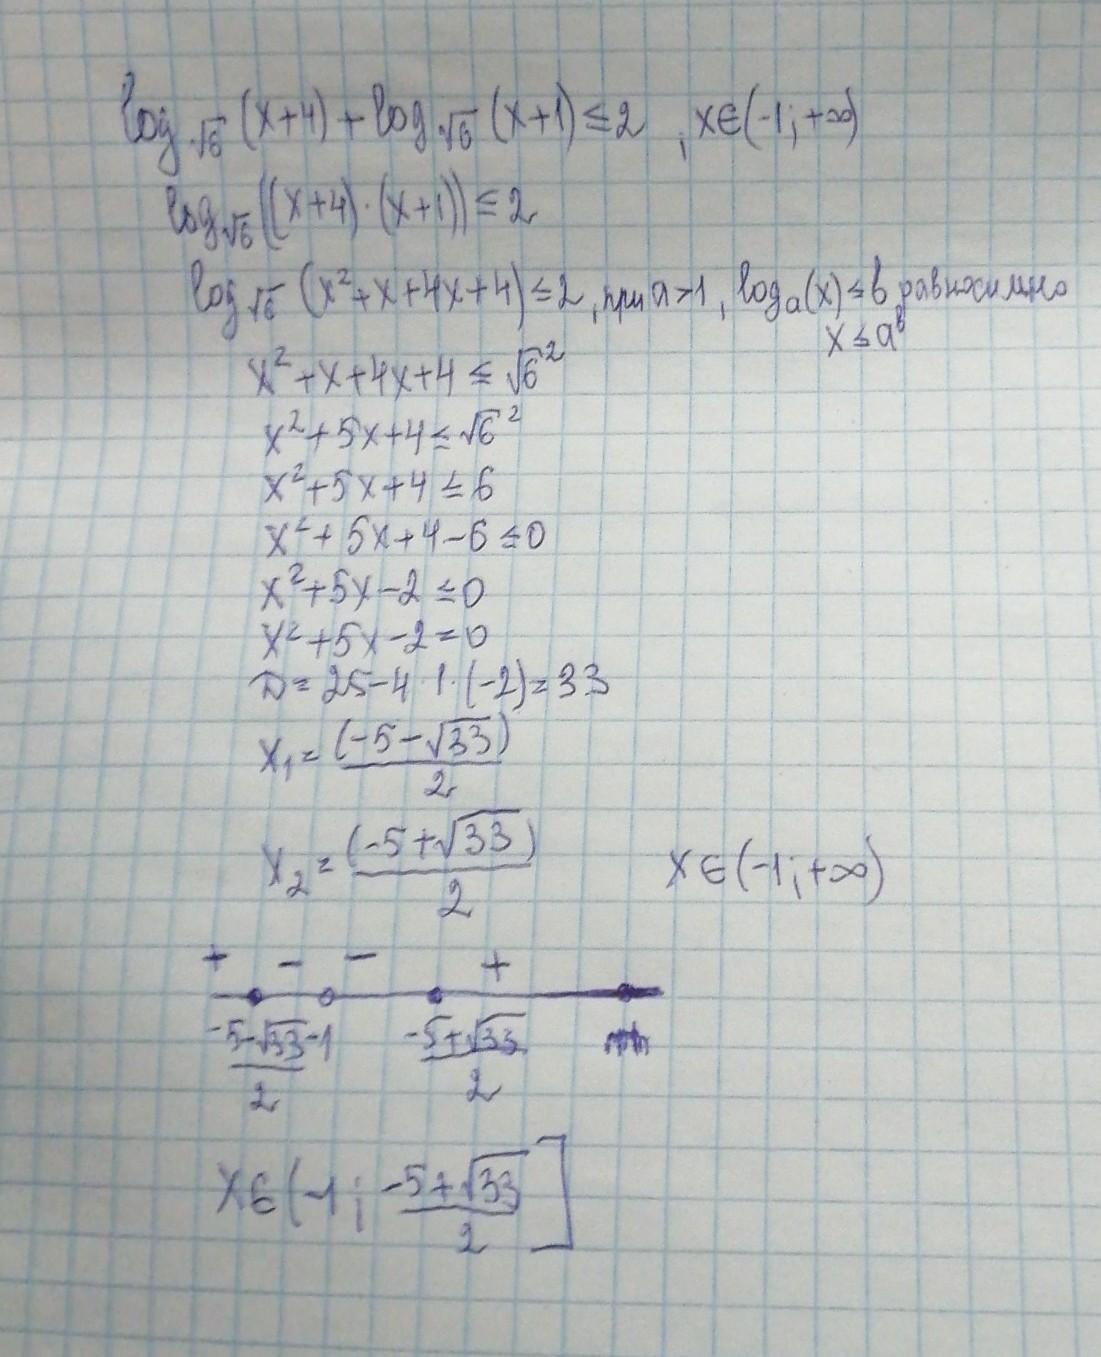 log√6 (x+4) + log√6 (x+1) ≤ 2 , x∈(-1; +∞)
log√6 ((x+4)·(x+1)) ≤ 2
log√6 (x²+x+4x+4) ≤ 2, при a>1, logₐ(x) ≤ b равносильно
x ≤ aᵇ
x²+x+4x+4 ≤ √6²
x²+5x+4 ≤ √6²
x²+5x+4 ≤ 6
x²+5x+4-6 ≤ 0
x²+5x-2 ≤ 0
x²+5x-2=0
D = 25-4·1·(-2) = 33
x₁ = (-5-√33)/2
x₂ = (-5+√33)/2 x∈(-1; +∞)
+ - - +
(-5-√33)/2 -1 (-5+√33)/2
x∈(-1; (-5+√33)/2]